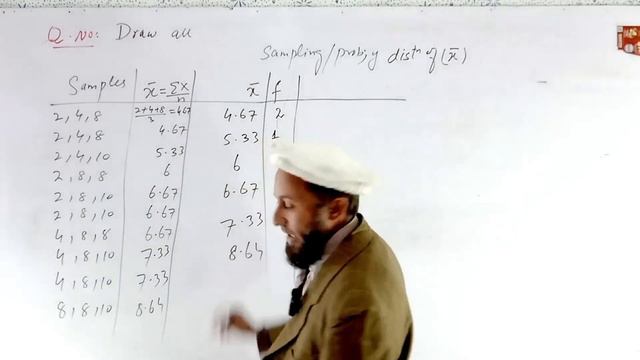 Q.No: Draw all
Sampling/prob;y distⁿ of (x̄)
Samples x̄ = ΣX/n x̄ f
2, 4, 8 (2+4+8)/3 = 4.67 4.67 2
2, 4, 8 4.67 5.33 1
2, 4, 10 5.33 6
2, 8, 8 6 6.67
2, 8, 10 6.67 7.33
2, 8, 10 6.67 8.64
4, 8, 8 6.67
4, 8, 10 7.33
4, 8, 10 7.33
8, 8, 10 8.64